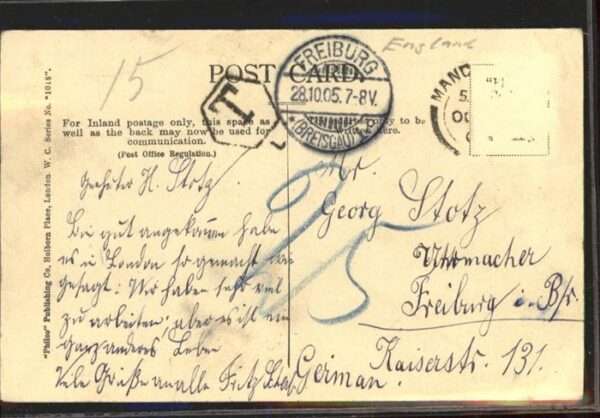 15
England
POST CARD.
FREIBURG
28.10.05.7-8V.
(BREISGAU)
T
MANC
For Inland postage only, this space as
well as the back may now be used for
communication.
(Post Office Regulation.)
to be
here.
"Philco" Publishing Co., Holborn Place, London W. C. Series No. "1016".
Geehrter H. Stotz.
Bin gut angekommen habe
es in London so gemacht wie
gesagt: Wir haben sehr viel
zu arbeiten; aber es ist ein
ganz anderes Leben
Viele Grüße an alle Fritz
25
Mr.
Georg Stotz
Uhrmacher
Freiburg i. B/r.
Kaiserstr. 131.
German.